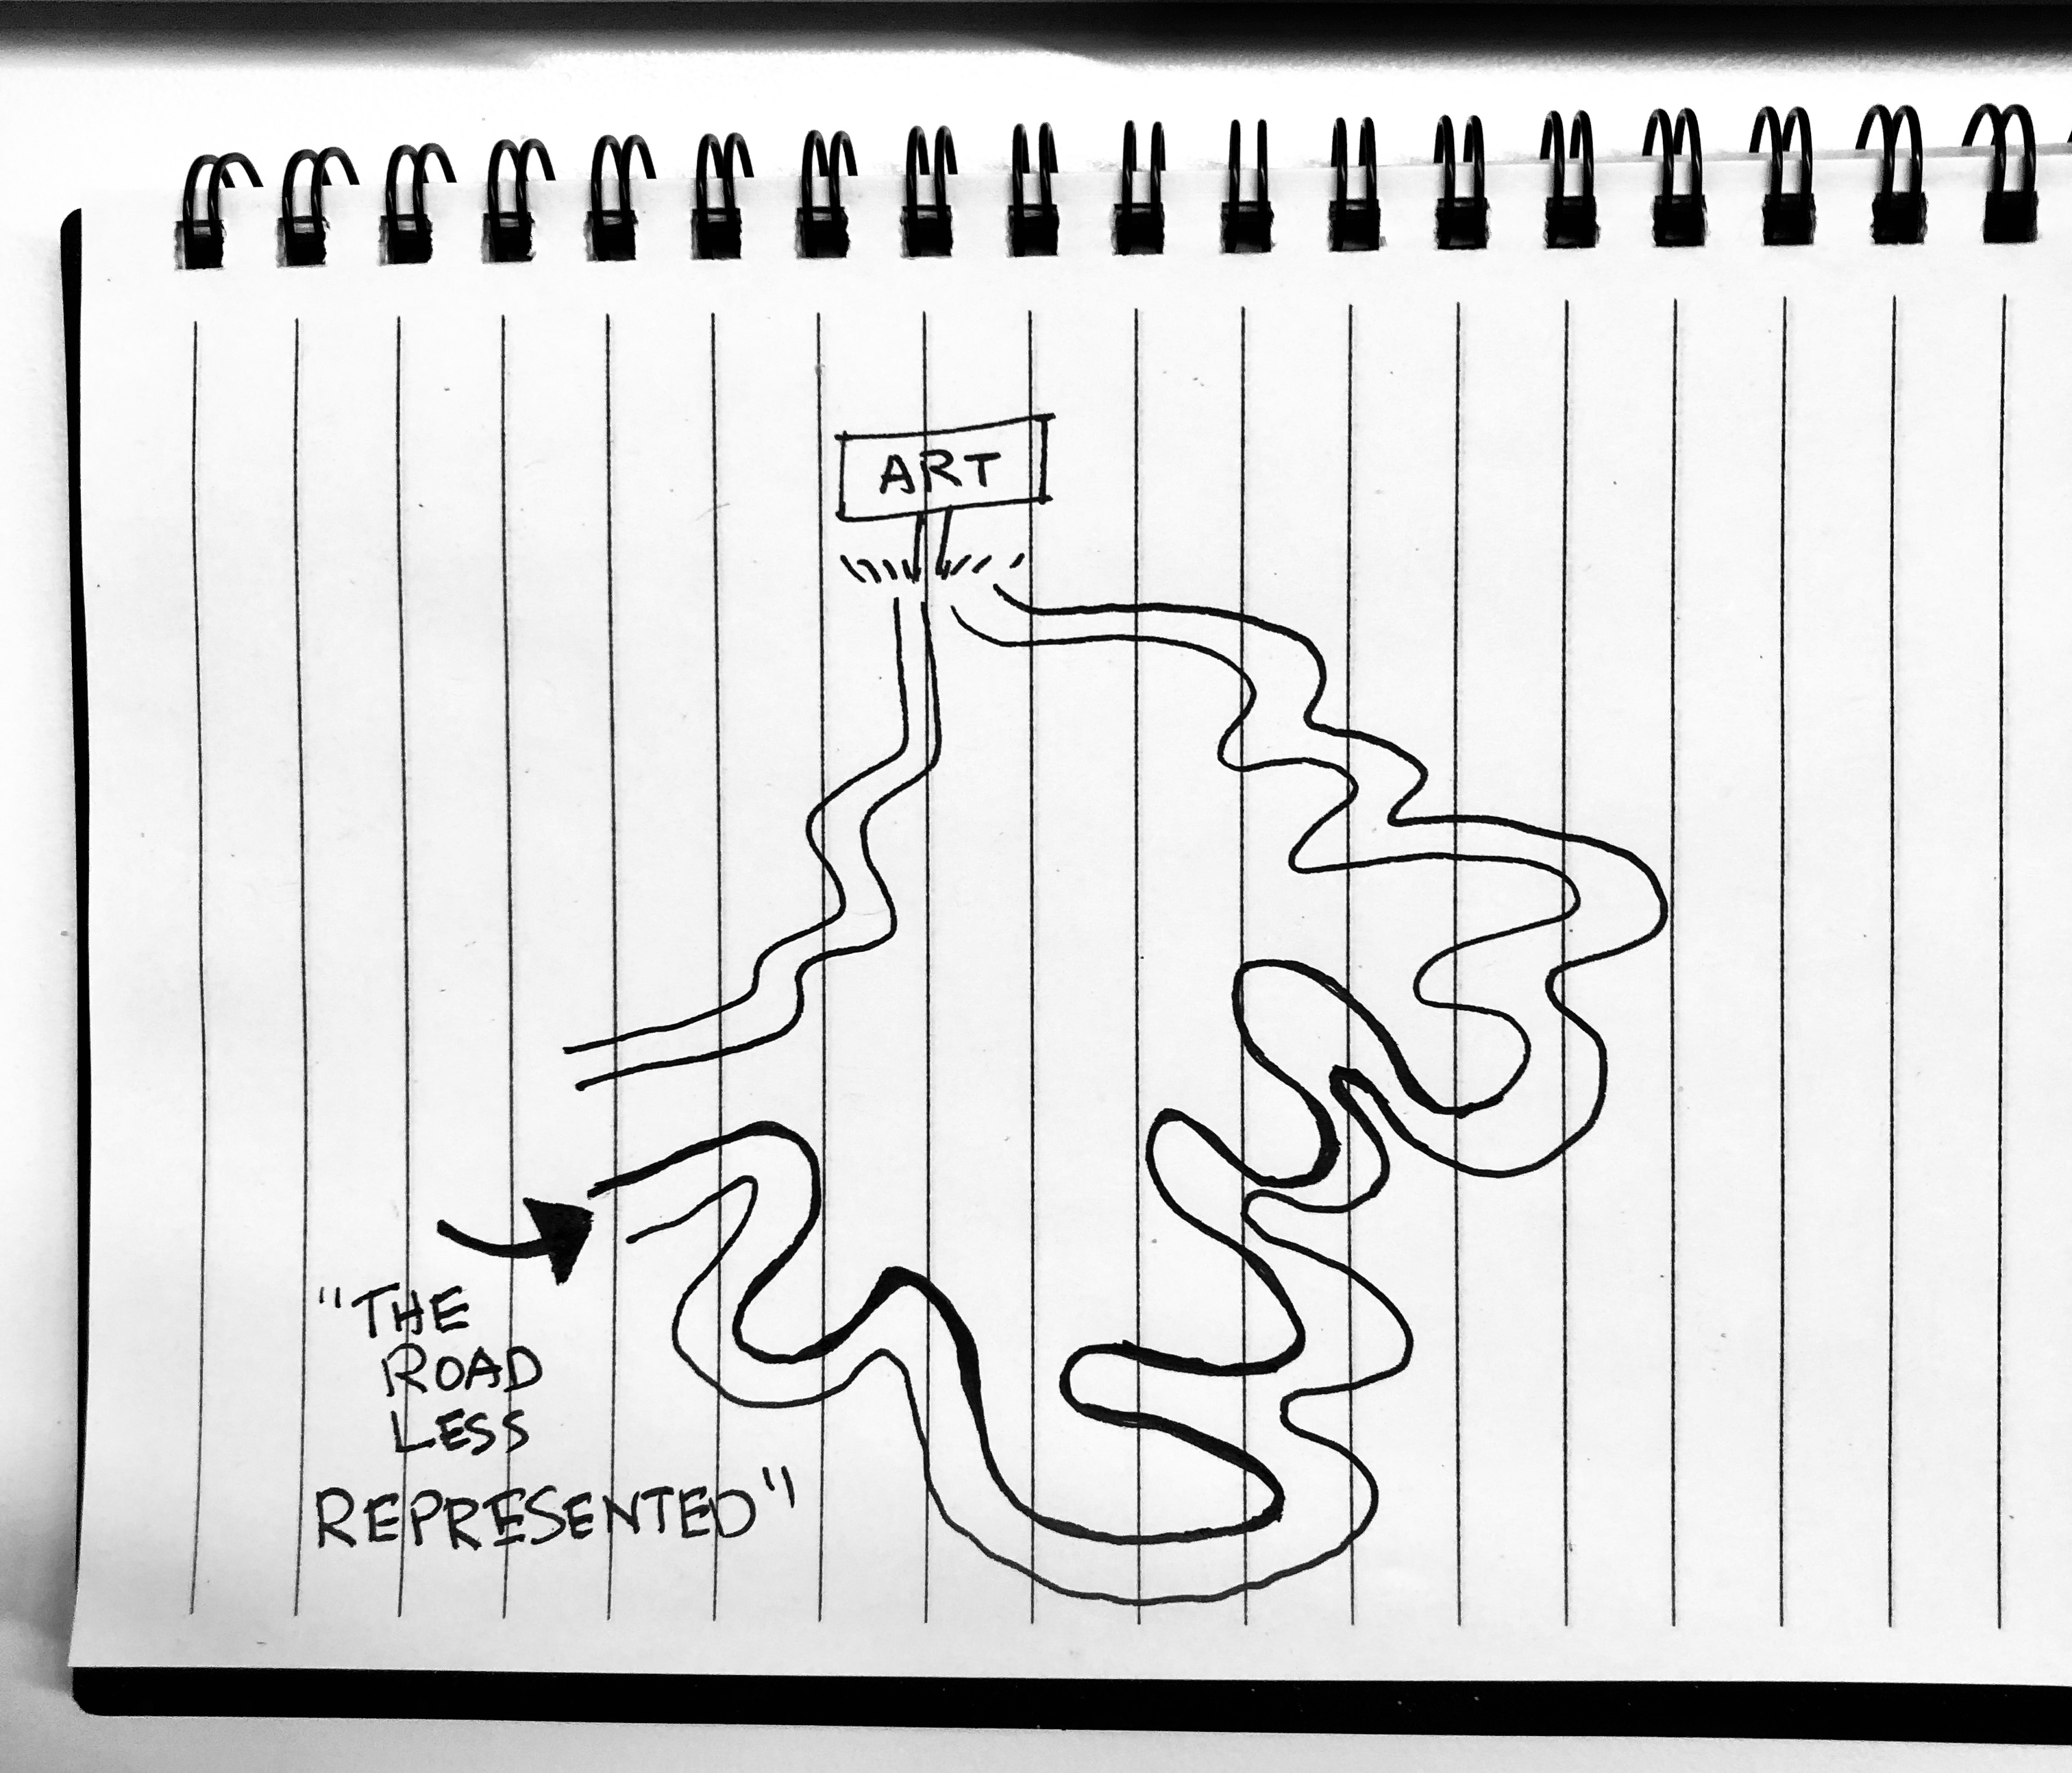 ART
"THE
ROAD
LESS
REPRESENTED"